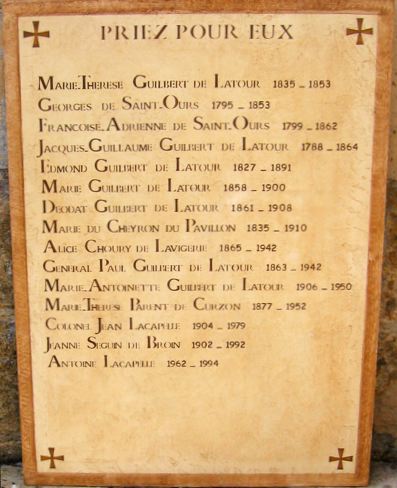 PRIEZ POUR EUX
MARIE-THERESE GUILBERT DE LATOUR 1835 - 1853
GEORGES DE SAINT-OURS 1795 - 1853
FRANCOISE-ADRIENNE DE SAINT-OURS 1799 - 1862
JACQUES-GUILLAUME GUILBERT DE LATOUR 1788 - 1864
EDMOND GUILBERT DE LATOUR 1827 - 1891
MARIE GUILBERT DE LATOUR 1858 - 1900
DEODAT GUILBERT DE LATOUR 1861 - 1908
MARIE DU CHEYRON DU PAVILLON 1835 - 1910
ALICE CHOURY DE LAVIGERIE 1865 - 1942
GENERAL PAUL GUILBERT DE LATOUR 1863 - 1942
MARIE-ANTOINETTE GUILBERT DE LATOUR 1906 - 1950
MARIE-THERESE PARENT DE CURZON 1877 - 1952
COLONEL JEAN LACAPELLE 1904 - 1979
JEANNE SEGUIN DE BROIN 1902 - 1992
ANTOINE LACAPELLE 1962 - 1994